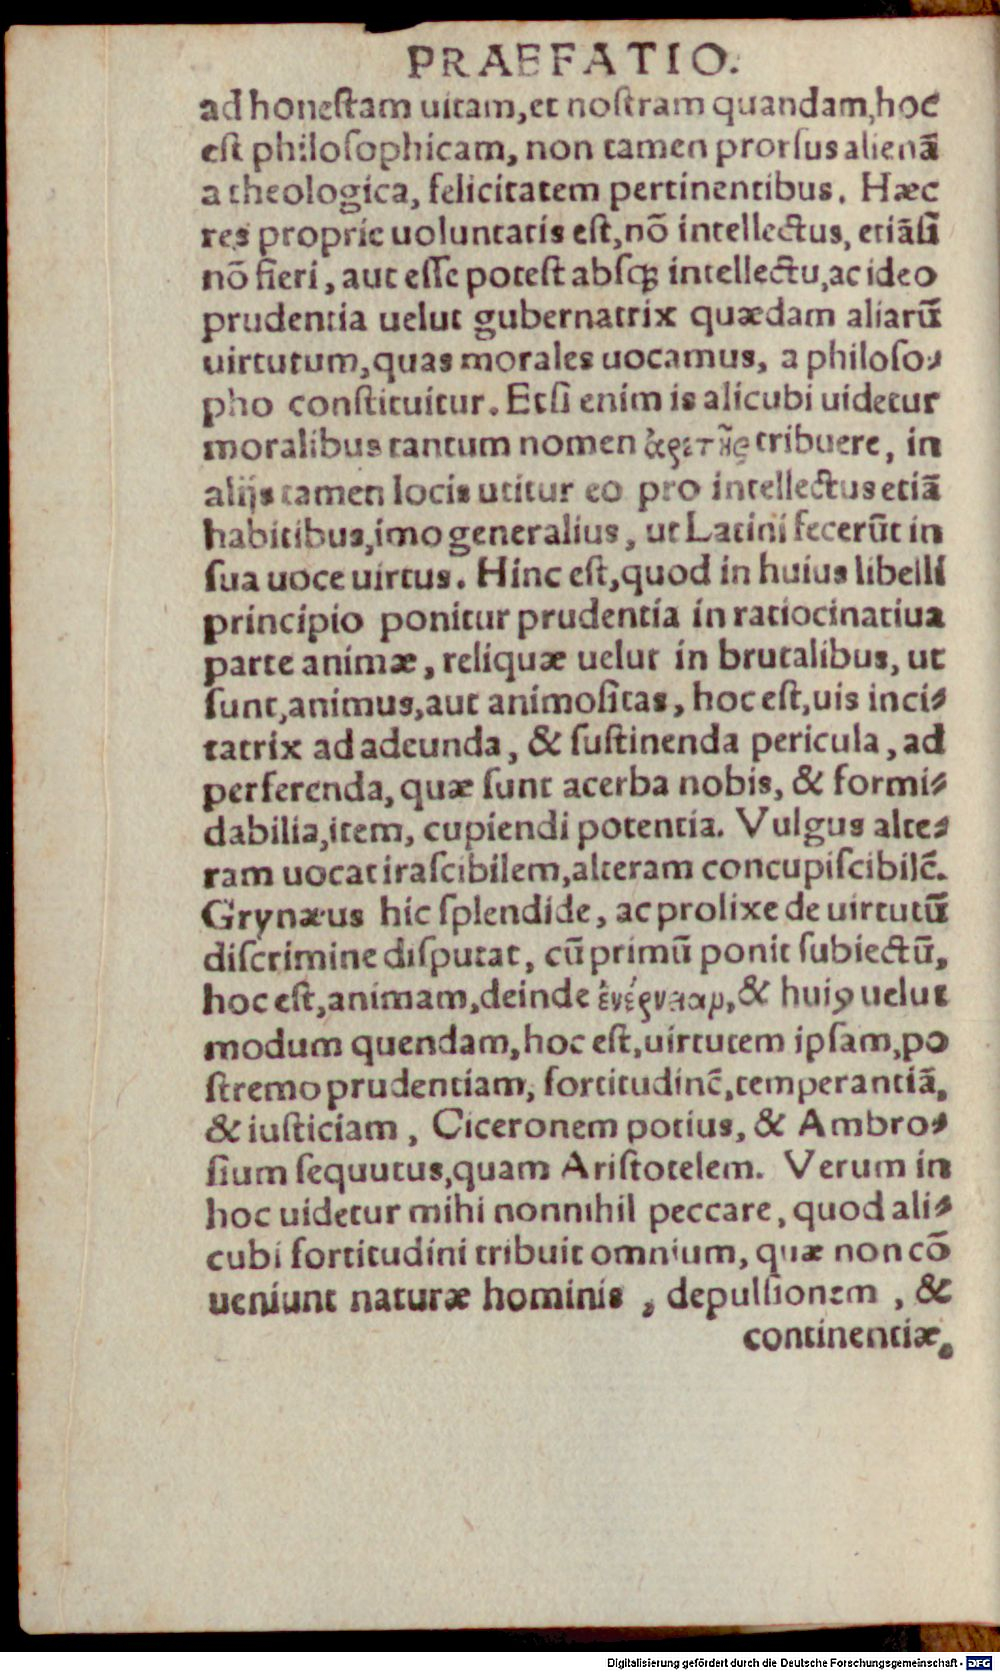 PRAEFATIO.
ad honeſtam uitam, et noſtram quandam, hoc
eſt philoſophicam, non tamen prorſus alienã
a theologica, felicitatem pertinentibus. Hæc
res proprie uoluntatis eſt, nõ intellectus, etiãſi
nõ fieri, aut eſſe poteſt abſqꝫ intellectu, ac ideo
prudentia uelut gubernatrix quædam aliarũ
uirtutum, quas morales uocamus, a philoſo-
pho conſtituitur. Etſi enim is alicubi uidetur
moralibus tantum nomen ἀρετῆς tribuere, in
alijs tamen locis utitur eo pro intellectus etiã
habitibus, imo generalius, ut Latini fecerũt in
ſua uoce uirtus. Hinc eſt, quod in huius libelli
principio ponitur prudentia in ratiocinatiua
parte animæ, reliquæ uelut in brutalibus, ut
ſunt, animus, aut animoſitas, hoc eſt, uis inci-
tatrix ad adeunda, & ſuſtinenda pericula, ad
perferenda, quæ ſunt acerba nobis, & formi-
dabilia, item, cupiendi potentia. Vulgus alte-
ram uocat iraſcibilem, alteram concupiſcibilẽ.
Grynæus hic ſplendide, ac prolixe de uirtutũ
diſcrimine diſputat, cũ primũ ponit ſubiectũ,
hoc eſt, animam, deinde ἐνέργειαν, & huiꝰ uelut
modum quendam, hoc eſt, uirtutem ipſam, po
ſtremo prudentiam, fortitudinẽ, temperantiã,
& iuſticiam, Ciceronem potius, & Ambro-
ſium ſequutus, quam Ariſtotelem. Verum in
hoc uidetur mihi nonnihil peccare, quod ali-
cubi fortitudini tribuit omnium, quæ non cõ
ueniunt naturæ hominis, depulſionem, &
continentiæ,
Digitalisierung gefördert durch die Deutsche Forschungsgemeinschaft - DFG